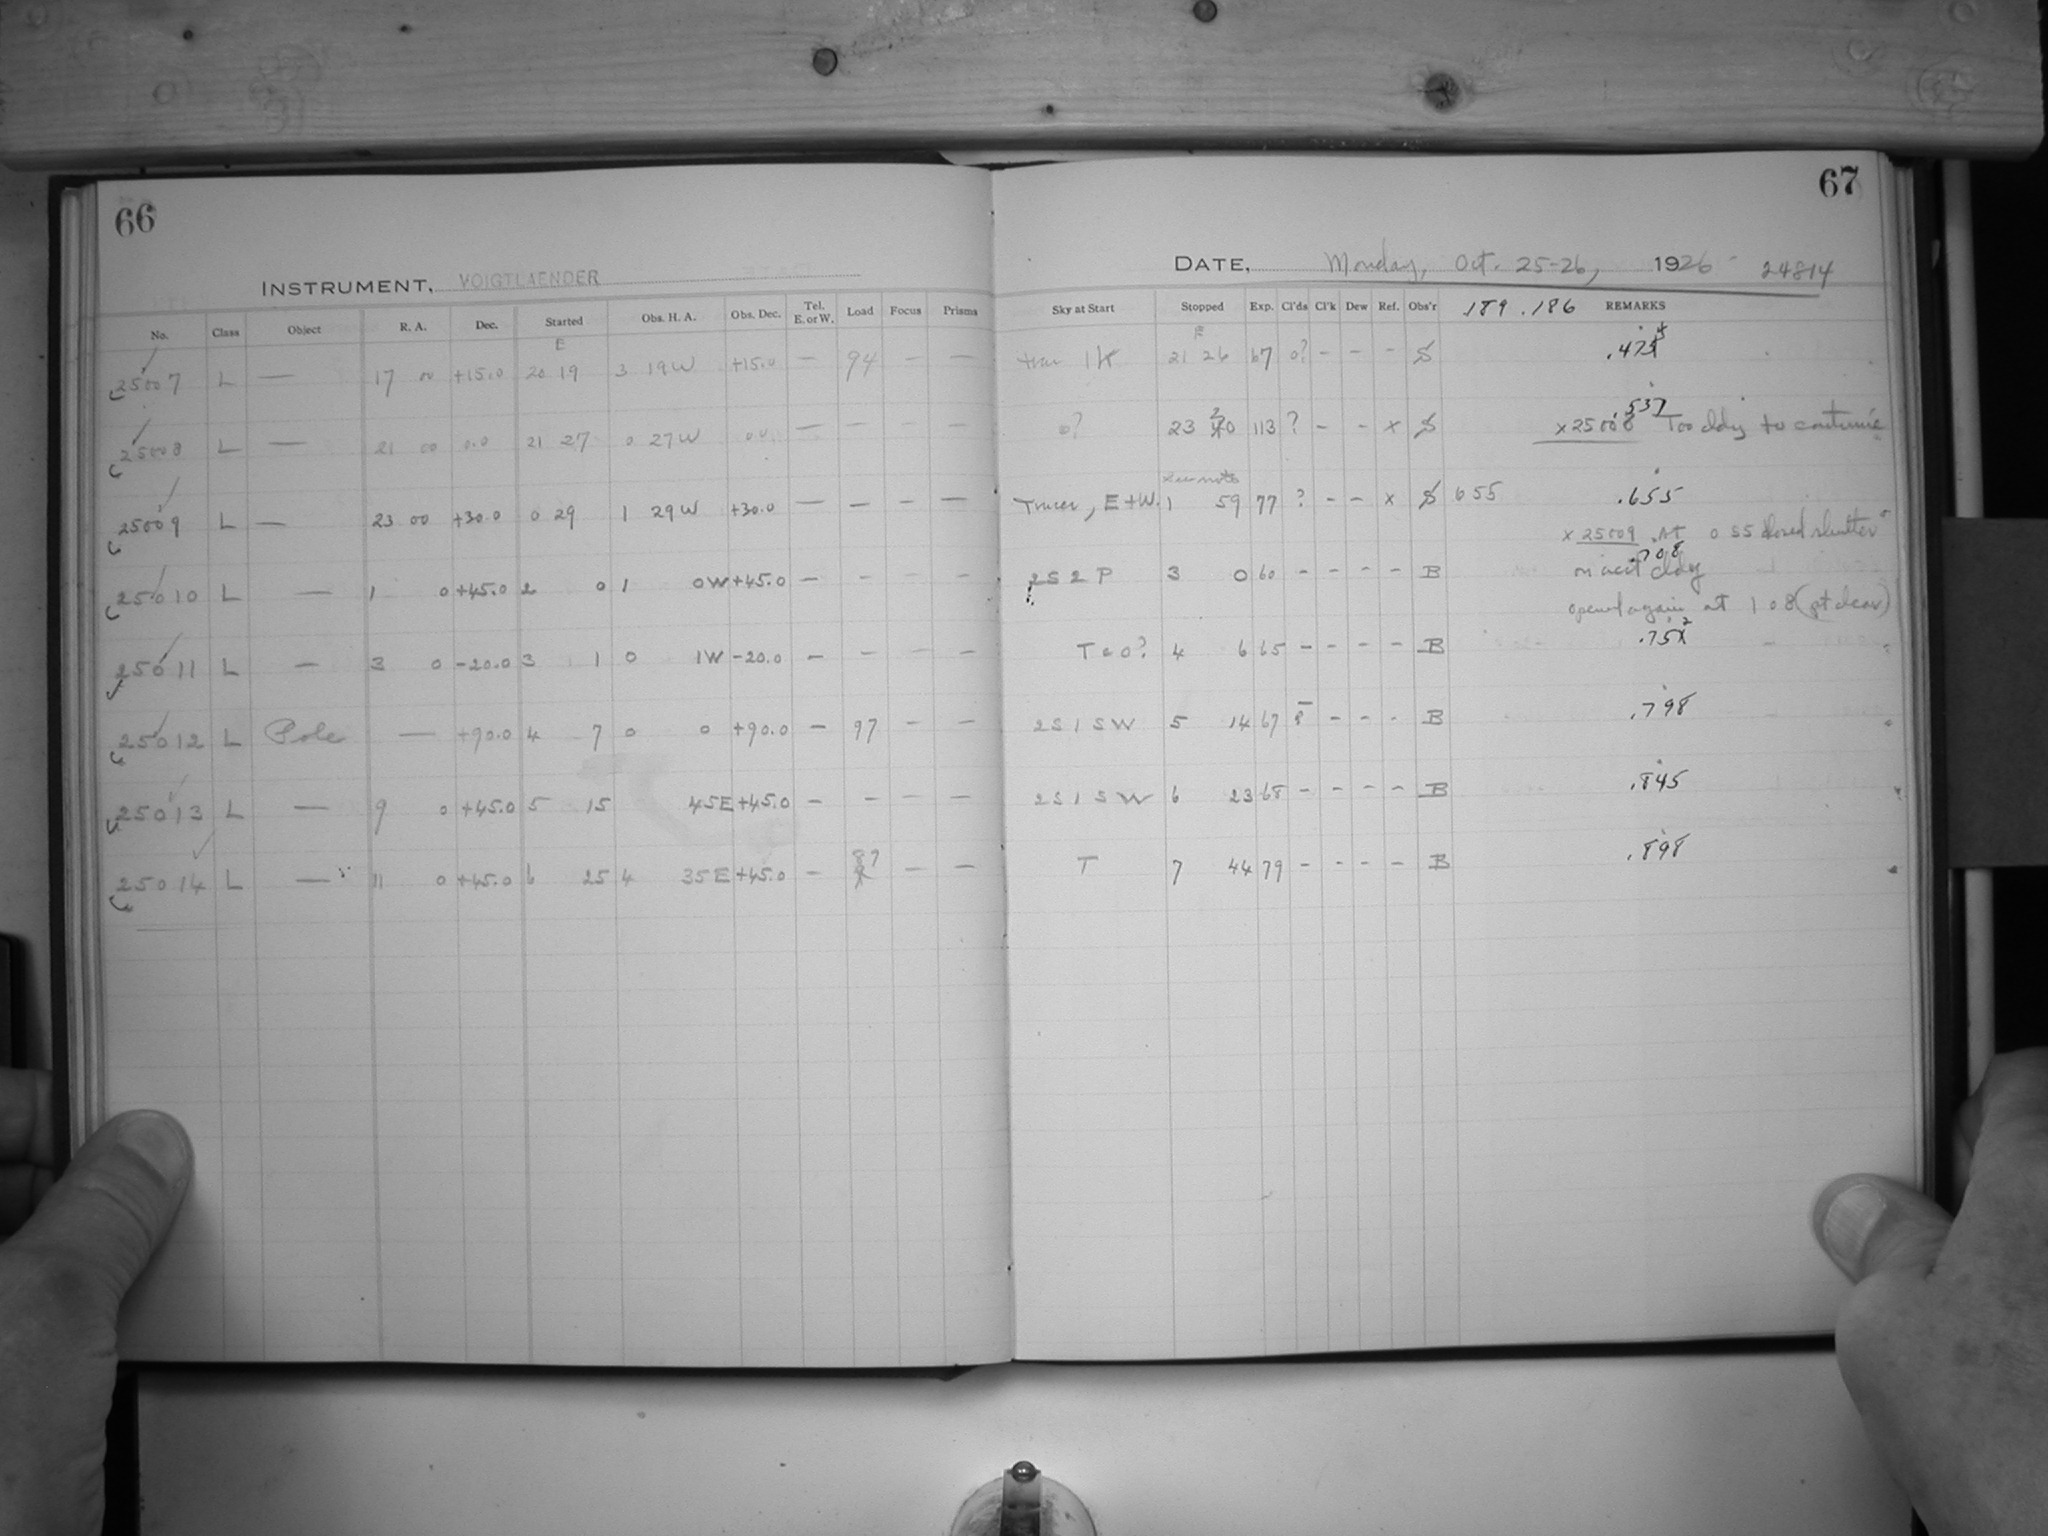 66
INSTRUMENT, VOIGTLAENDER
No. Class Object R. A. Dec. Started Obs. H. A. Obs. Dec. Tel. E. or W. Load Focus Prisms
E
25007 L — 17 00 +15.0 20 19 3 19W +15.0 — 94 — —
25008 L — 21 00 0.0 21 27 0 27W 00 — — — —
25009 L — 23 00 +30.0 0 29 1 29W +30.0 — — — —
25010 L — 1 0 +45.0 2 0 1 0W +45.0 — — — —
25011 L — 3 0 -20.0 3 1 0 1W -20.0 — — — —
25012 L Pole — +90.0 4 7 0 0 +90.0 — 97 — —
25013 L — 9 0 +45.0 5 15 45E +45.0 — — — —
25014 L — 11 0 +45.0 6 25 4 35E +45.0 — 87 — —
67
DATE, Monday, Oct. 25-26, 1926 24814
Sky at Start Stopped Exp. Cl'ds Cl'k Dew Ref. Obs'r .189 .186 REMARKS
E
21 26 67 0? - - - S .474
.537
0? 23 20 113 ? - - x S x 25008 Too cldy to continue
x see note
E+W. 1 59 77 ? - - x S 655 .655
x 25009 At 0 55 closed shutter
.708
2S2P 3 0 60 - - - - B on acct cldy
opened again at 1 08 (pt clear)
T c 0? 4 6 65 - - - - B .752
2S1SW 5 14 67 8 - - - B .798
2S1SW 6 23 68 - - - - B .845
T 7 44 79 - - - - B .898